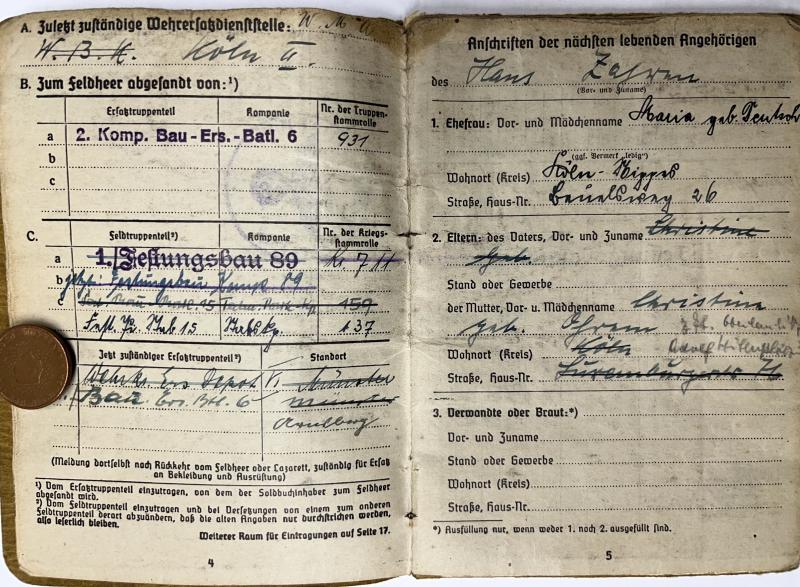 A. Zuletzt zuständige Wehrersatzdienststelle: W. M. A
W. B. K. Köln II.
B. Zum Feldheer abgesandt von:¹)
Ersatztruppenteil Kompanie Nr. der Truppen-
stammrolle
a 2. Komp. Bau-Ers.-Batl. 6 931
b
c
C. Feldtruppenteil²) Kompanie Nr. der Kriegs-
stammrolle
a 1. Festungsbau 89 Kr. 7
b Festungsbau Komp. 89
c 459
Fest. Pi. Stab 15 Stabskp. 137
Jetzt zuständiger Ersatztruppenteil²) Standort
Wehrk. Ers. Depot VI Münster
Bau Ers. Btl. 6 Münster
Arnsberg
(Meldung dortselbst nach Rückkehr vom Feldheer oder Lazarett, zuständig für Ersatz
an Bekleidung und Ausrüstung)
¹) Vom Ersatztruppenteil einzutragen, von dem der Soldbuchinhaber zum Feldheer
abgesandt wird.
²) Vom Feldtruppenteil einzutragen und bei Versetzungen von einem zum anderen
Feldtruppenteil derart abzuändern, daß die alten Angaben nur durchstrichen werden,
also leserlich bleiben.
Weiterer Raum für Eintragungen auf Seite 17.
4
Anschriften der nächsten lebenden Angehörigen
des Hans
(Vor- und Zuname)
1. Ehefrau: Vor- und Mädchenname Maria geb.
(ggf. Vermerk „ledig“)
Wohnort (Kreis) Köln-Nippes
Straße, Haus-Nr. Beuelsweg 26
2. Eltern: des Vaters, Vor- und Zuname Christine
geb.
Stand oder Gewerbe
der Mutter, Vor- u. Mädchenname Christine
geb. Ohrem
Wohnort (Kreis) Köln
Straße, Haus-Nr. Luxemburgerstr 76
3. Verwandte oder Braut:*)
Vor- und Zuname
Stand oder Gewerbe
Wohnort (Kreis)
Straße, Haus-Nr.
*) Ausfüllung nur, wenn weder 1. noch 2. ausgefüllt sind.
5